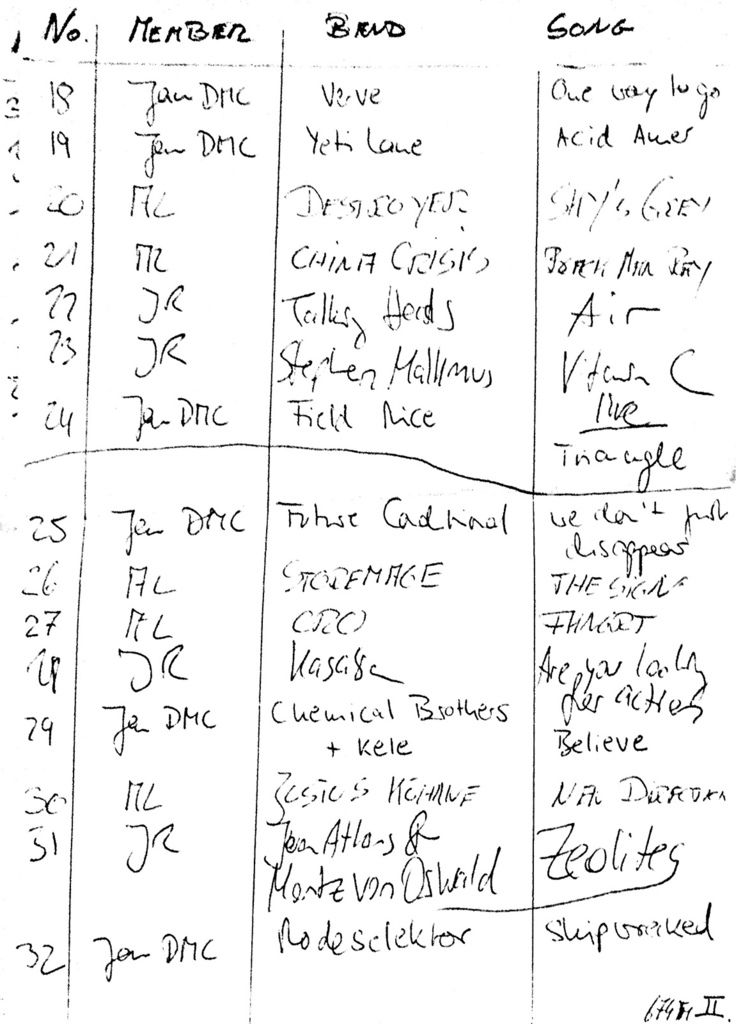 No. MEMBER BAND SONG
18 Jan DMC Verve One way to go
19 Jan DMC Yeti Lane Acid Amer
20 ML DESTROYER GREY
21 ML CHINA CRISIS MAN RAY
22 JR Talking Heads Air
23 JR Stephen Malkmus Vitamin C
live
24 Jan DMC Field Mice
Triangle
25 Jan DMC Future Cardinal we don't just
disappear
26 ML THE SIGN
27 ML
JR Kasabian Are you looking
for action
29 Jan DMC Chemical Brothers
+ Kele Believe
30 ML NEW DIRECTION
31 JR Juan Atkins &
Moritz von Oswald Zeolites
32 Jan DMC Modeselektor Shipwreked
II.